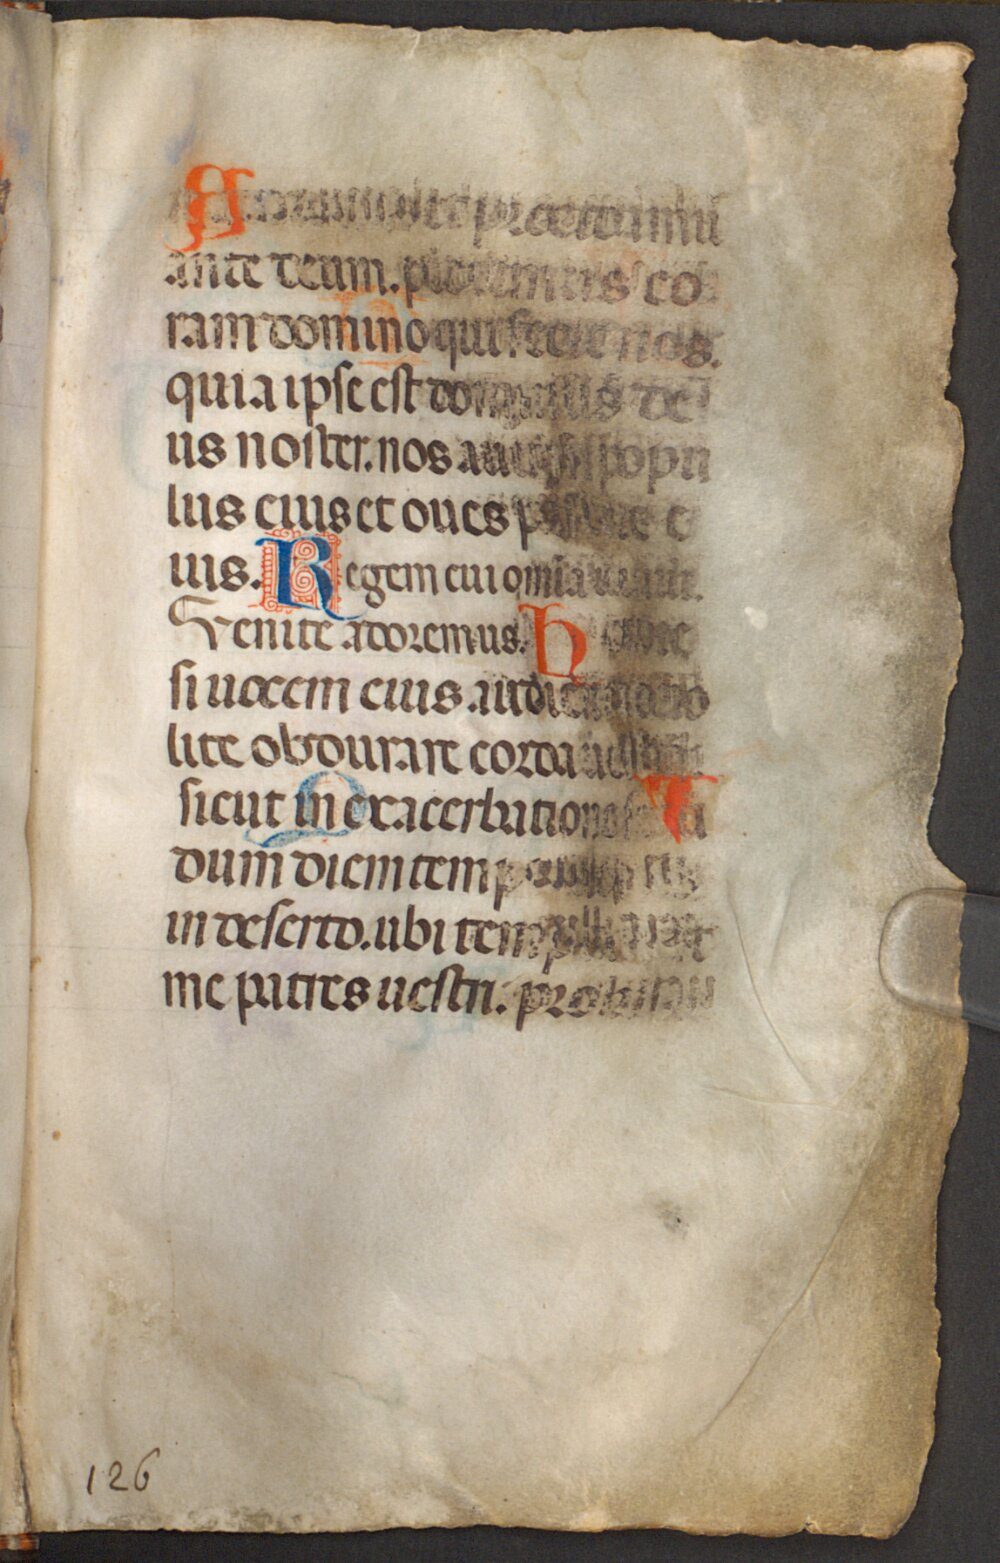 ante deum. ploremus co
ram domino qui fecit nos.
quia ipse est dominus de
us noster. nos autem popu
lus eius et oues pascue e
uis. Regem cui omnia uiuunt.
Venite adoremus. hodie
si uocem eius audieritis no
lite obdurare corda uestra
sicut in exacerbatione
dum diem temp
in deserto. ubi temptauerunt
me patres uestri. probaueru
126